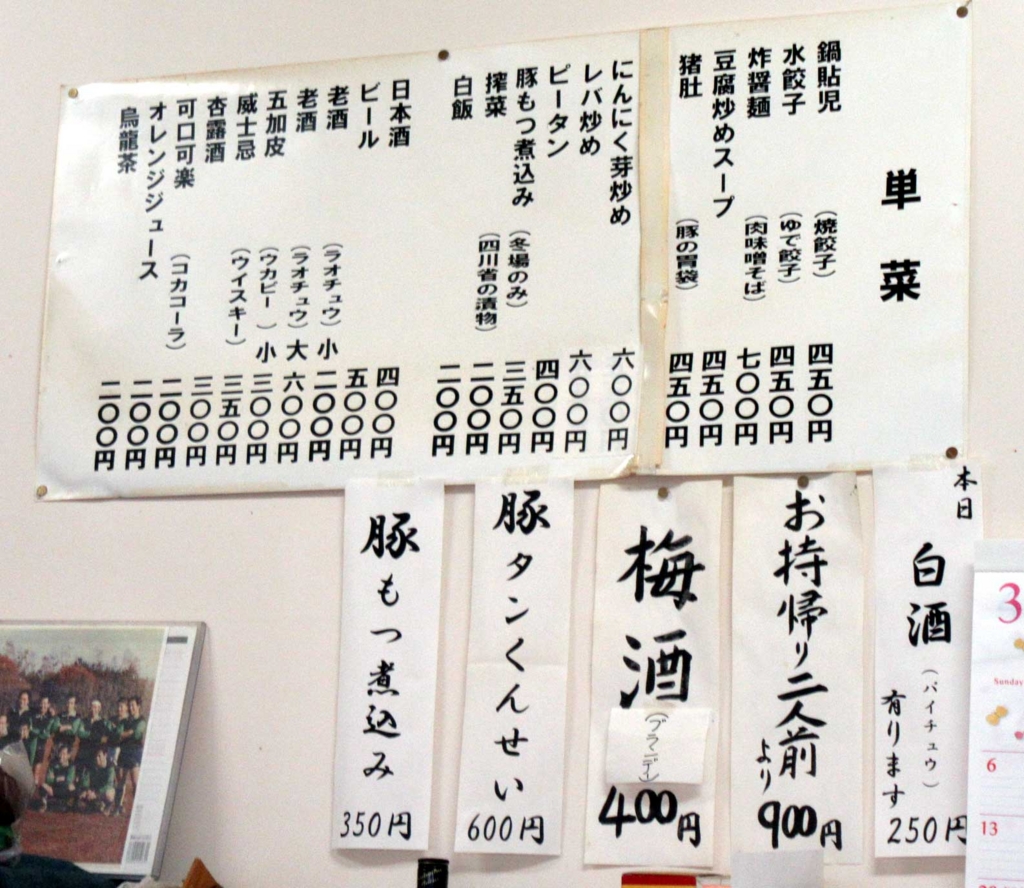 単菜
鍋貼児（焼餃子）四五〇円
水餃子（ゆで餃子）四五〇円
炸醤麺（肉味噌そば）七〇〇円
豆腐炒めスープ 四五〇円
猪肚（豚の胃袋）四五〇円
にんにく芽炒め 六〇〇円
レバ炒め 六〇〇円
ピータン 四〇〇円
豚もつ煮込み（冬場のみ）三五〇円
搾菜（四川省の漬物）二〇〇円
白飯 二〇〇円
日本酒 四〇〇円
ビール 五〇〇円
老酒（ラオチュウ）小 二〇〇円
老酒（ラオチュウ）大 六〇〇円
五加皮（ウカピー）小 三〇〇円
威士忌（ウイスキー）三五〇円
杏露酒 三〇〇円
可口可楽（コカコーラ）二〇〇円
オレンジジュース 二〇〇円
烏龍茶 二〇〇円
本日
白酒（パイチュウ）
有ります
250円
お持帰り二人前
より
900円
梅酒
（ブランデイ）
400円
豚タンくんせい
600円
豚もつ煮込み
350円
3
Sunday
6
13